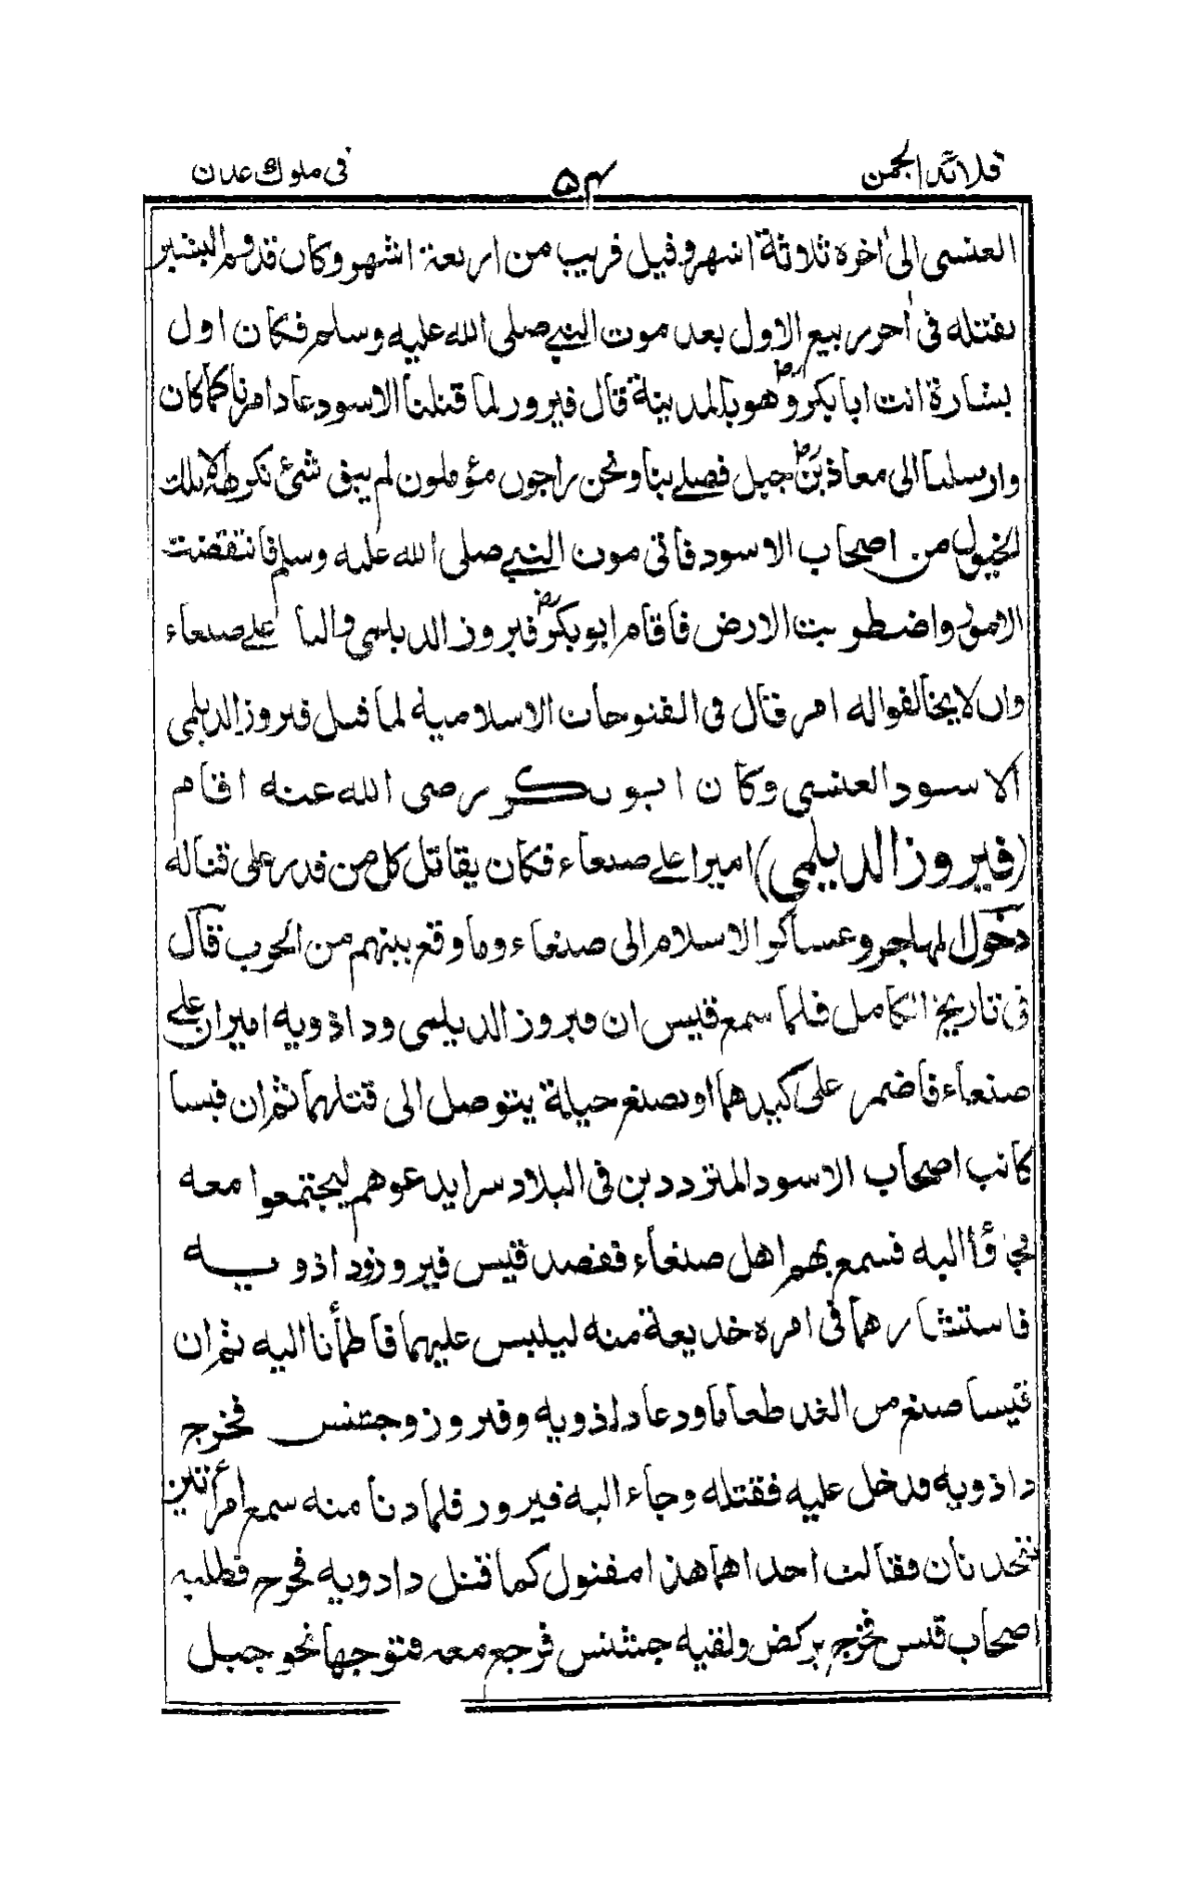 قلائد الجمن ۵۴ فى ملوك عدن
العنسى الى أخره ثلاثة اشهر وقيل قريب من اربعة اشهر وكان قدوم البشير
بقتله فى أخر ربيع الاول بعد موت النبي صلى الله عليه وسلم فكان اول
بشارة اتت ابا بكر رض وهو بالمدينة قال فيروز لما قتلنا الاسود عاد امرنا كما كان
وارسلنا الى معاذ بن جبل رض فصلے بنا ونحن راجون مؤملون لم يبق شئ نكرهه الا تلك
الخيول من اصحاب الاسود فاتى موت النبي صلى الله عليه وسلم فانتقضت
الامور واضطربت الارض فاقام ابو بكر رض فيروز الديلمى واليا علے صنعاء
وان لا يخالفوا له امر قال فى الفتوحات الاسلامية لما قتل فيروز الديلمى
الاسود العنسى وكان ابو بكر رضى الله عنه اقام
(فيروز الديلمي) اميرا علے صنعاء فكان يقاتل كل من قدر على قتاله
دخول المهاجر وعساكر الاسلام الى صنعاء وما وقع بينهم من الحرب قال
فى تاريخ الكامل فلما سمع قيس ان فيروز الديلمى وداذويه اميران علے
صنعاء فاضمر على كيدهما او يصنع حيلة يتوصل الى قتلهما ثم ان قيسا
كاتب اصحاب الاسود المترددين فى البلاد سرا يدعوهم ليجتمعوا معه
فجاؤا اليه فسمع بهم اهل صنعاء فقصد قيس فيروز وداذويه
فاستشارهما فى امره خديعة منه ليلبس عليهما فاطمأنا اليه ثم ان
قيسا صنع من الغد طعاما ودعا داذويه وفيروز وجشنس فخرج
داذويه فدخل عليه فقتله وجاء اليه فيروز فلما دنا منه سمع امرأتين
تتحدثان فقالت احداهما هذا مقتول كما قتل داذويه فخرج فطلبه
اصحاب قيس فخرج يركض ولقيه جشنس فرجع معه فتوجها نحو جبل